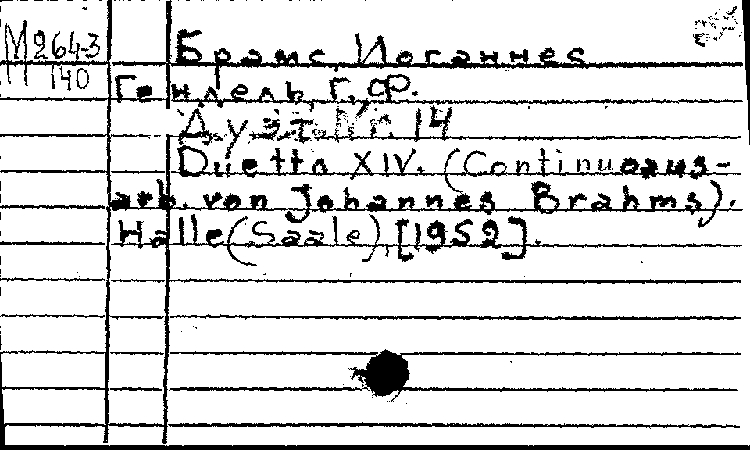 М2643
140
Брамс, Иоганнес
Гендель, Г.Ф.
Дуэт. Nr. 14
Duetto XIV. (Continuoaus-
arb. von Johannes Brahms).
Halle (Saale), [1952].